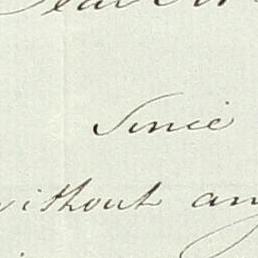 Since
without any